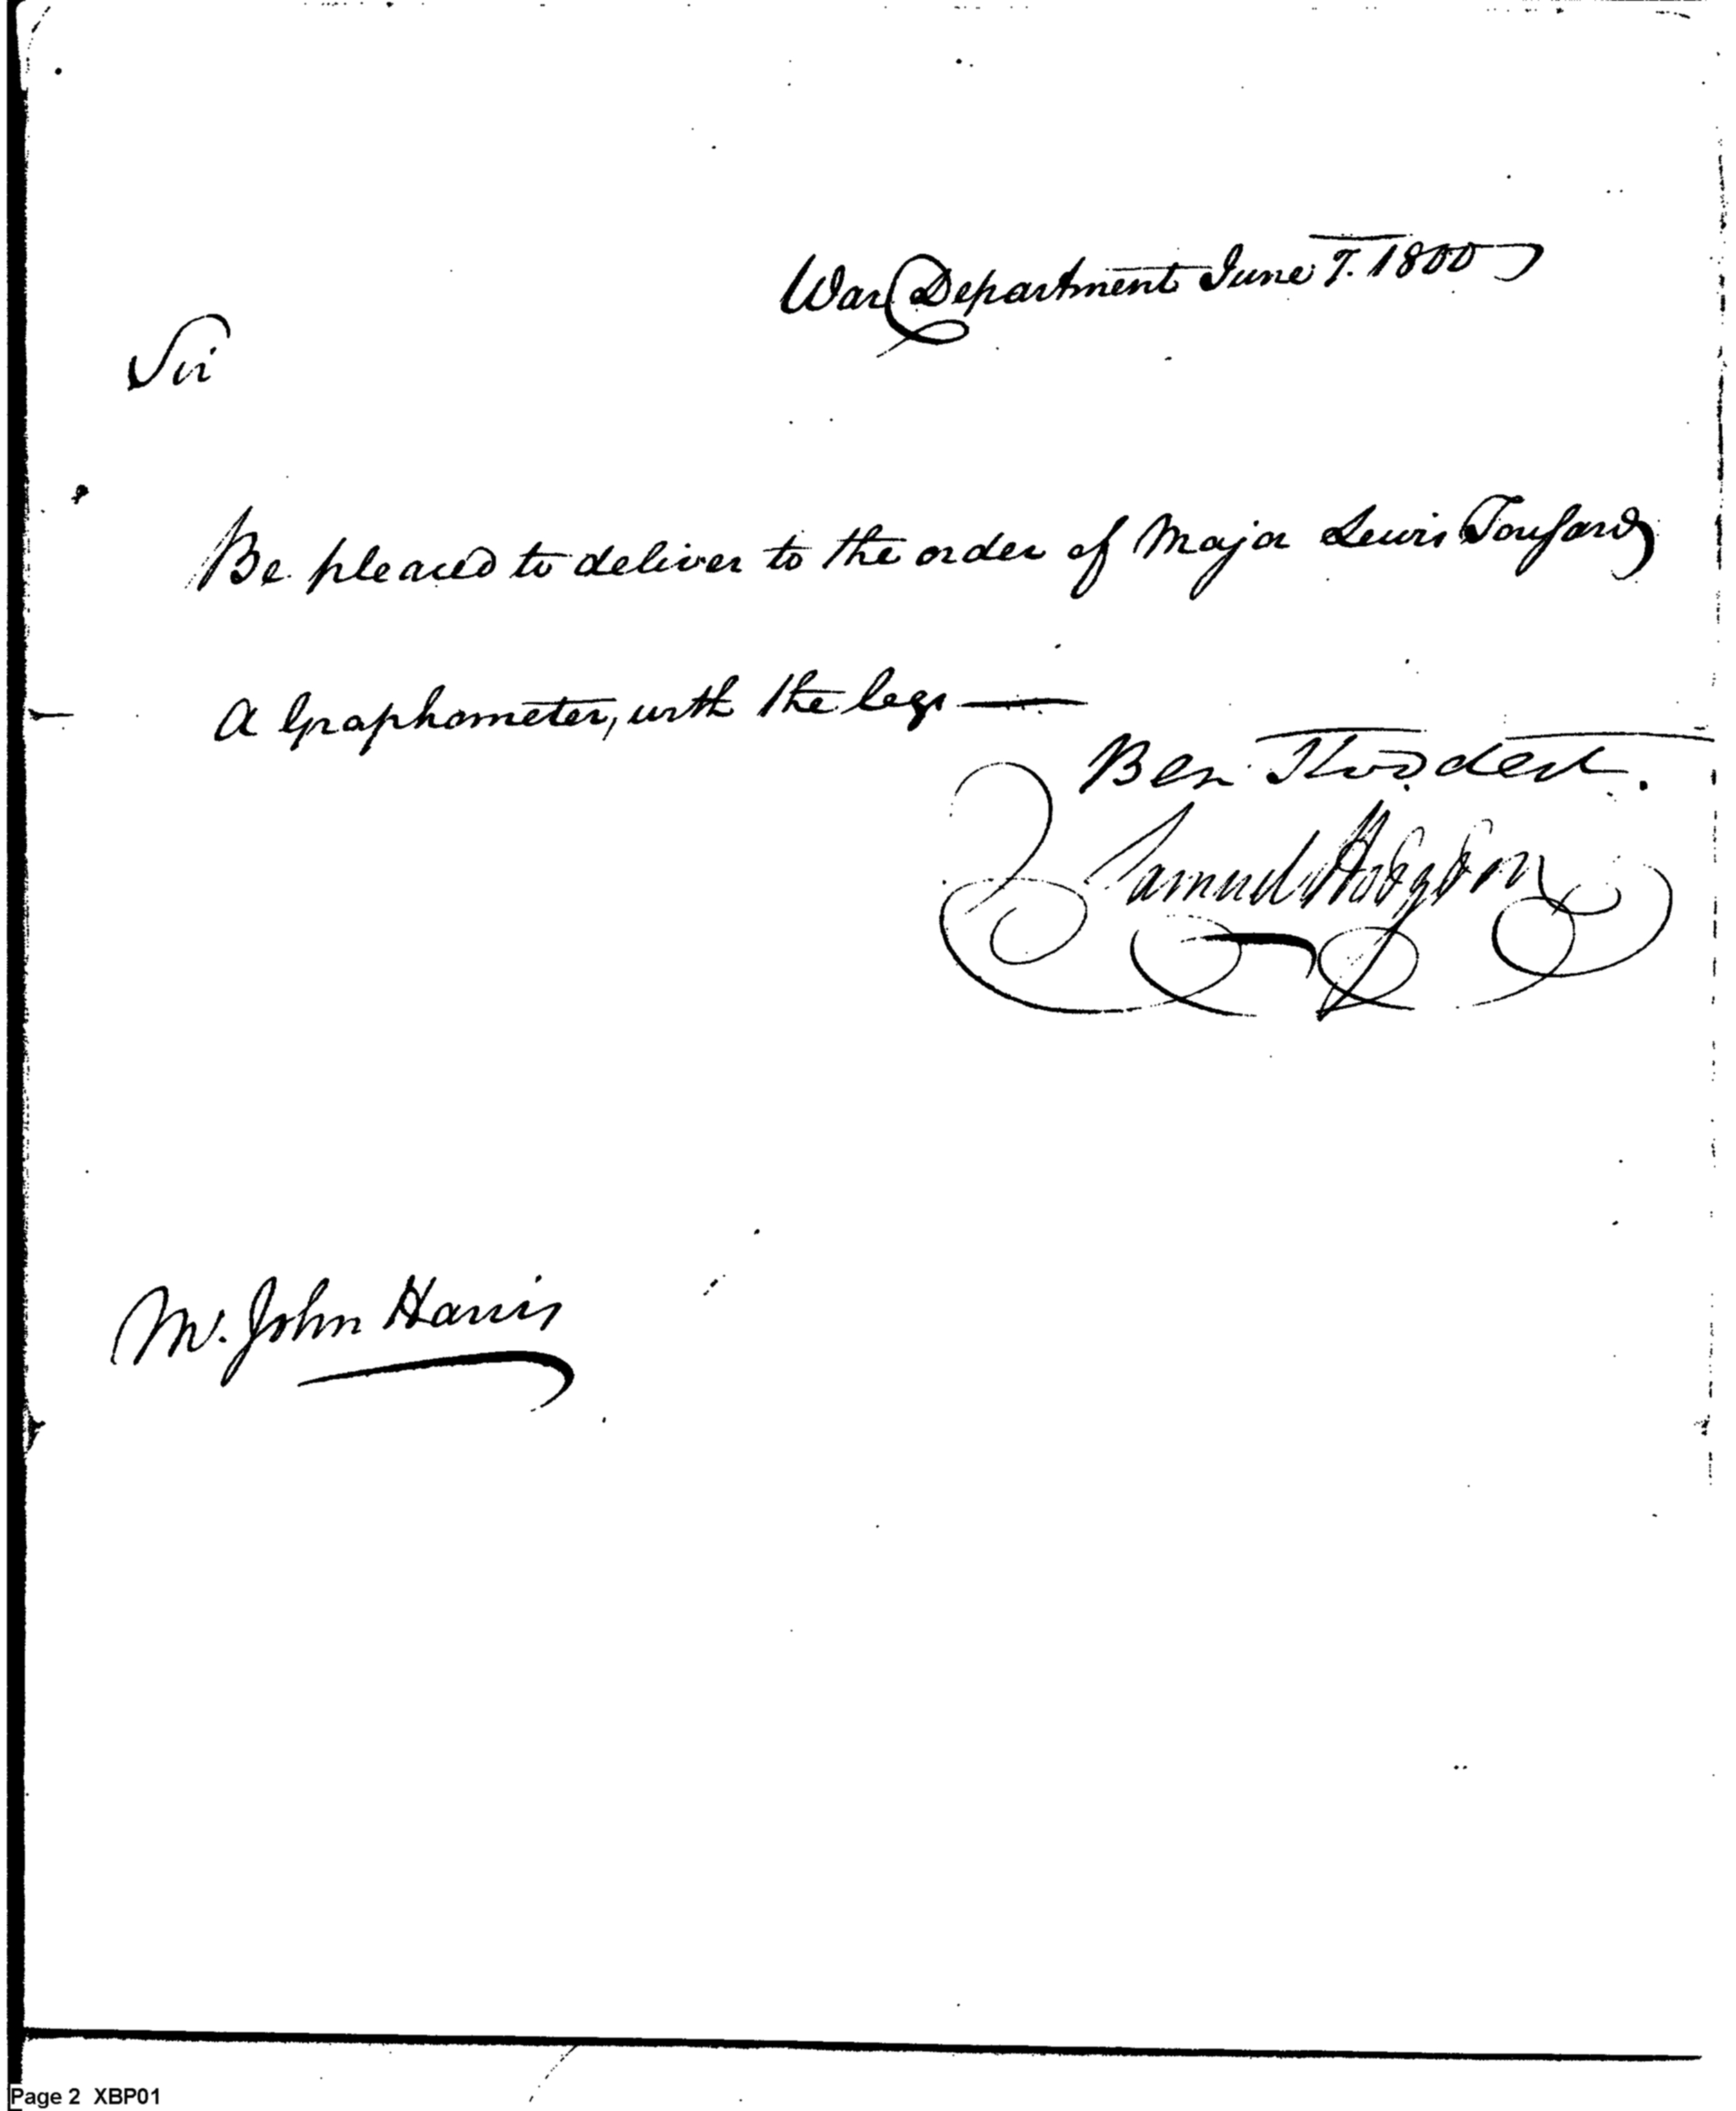 War Department June 7. 1800
Sir
Be pleased to deliver to the order of Major Lewis Tousard
A Graphometer, with the legs —
Ben Stoddert.
Samuel Hodgdon
Mr. John Harris
Page 2 XBP01